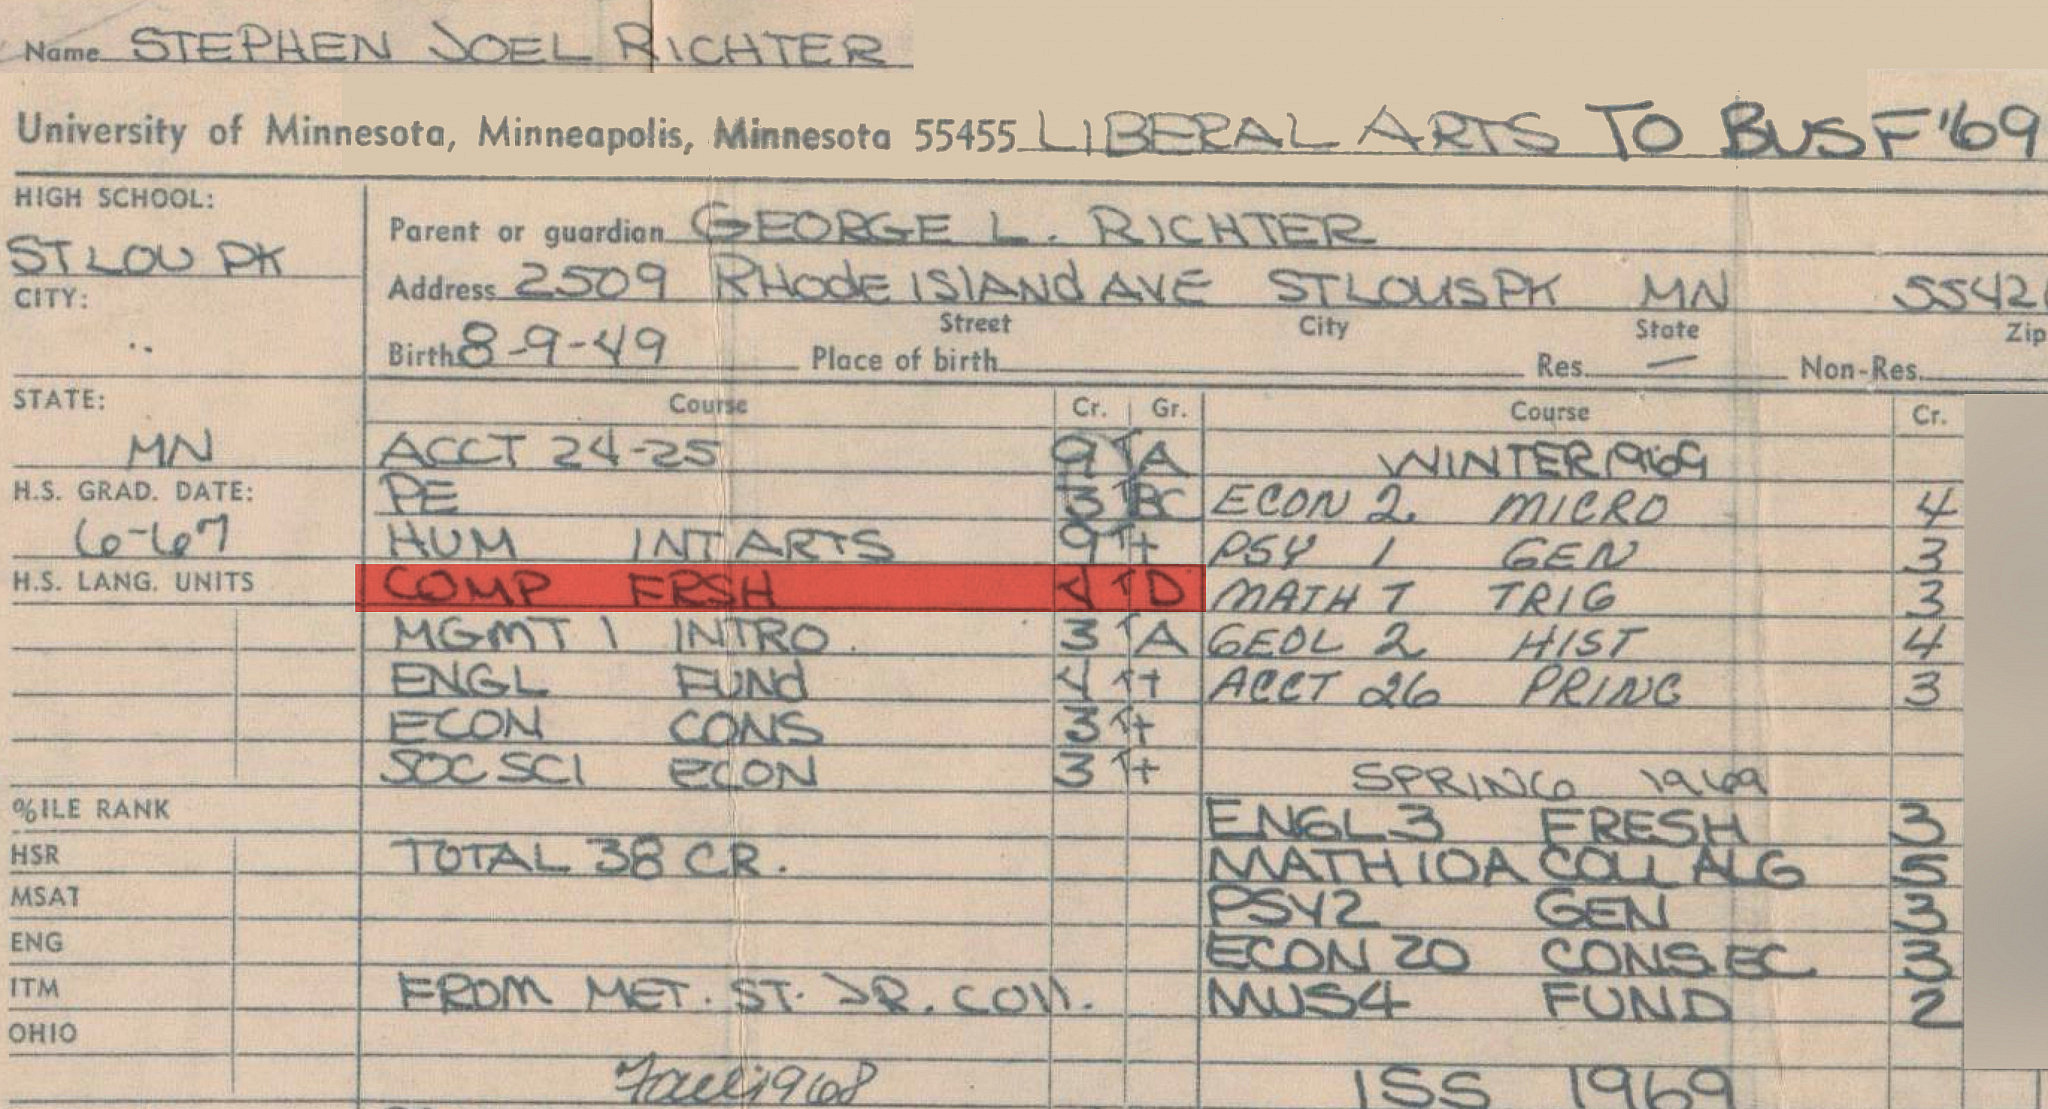 Name STEPHEN JOEL RICHTER
University of Minnesota, Minneapolis, Minnesota 55455 LIBERAL ARTS TO BUS F'69
HIGH SCHOOL:
ST LOU PK
CITY:
STATE:
MN
H.S. GRAD. DATE:
6-67
H.S. LANG. UNITS
%ILE RANK
HSR
MSAT
ENG
ITM
OHIO
Parent or guardian GEORGE L. RICHTER
Address 2509 RHODE ISLAND AVE ST LOUIS PK MN 5542
Street City State Zip
Birth 8-9-49 Place of birth Res. — Non-Res.
Course Cr. Gr.
ACCT 24-25 9 T A
PE 3 T BC
HUM INT ARTS 9 T +
COMP FRSH 4 T D
MGMT 1 INTRO. 3 T A
ENGL FUNd 4 T +
ECON CONS 3 T +
SOC SCI ECON 3 T +
TOTAL 38 CR.
FROM MET. ST. JR. COLL.
Fall 1968
Course Cr.
WINTER 1969
ECON 2 MICRO 4
PSY 1 GEN 3
MATH T TRIG 3
GEOL 2 HIST 4
ACCT 26 PRINC 3
SPRING 1969
ENGL 3 FRESH 3
MATH 10A COLL ALG 5
PSY 2 GEN 3
ECON 20 CONS EC 3
MUS 4 FUND 2
ISS 1969